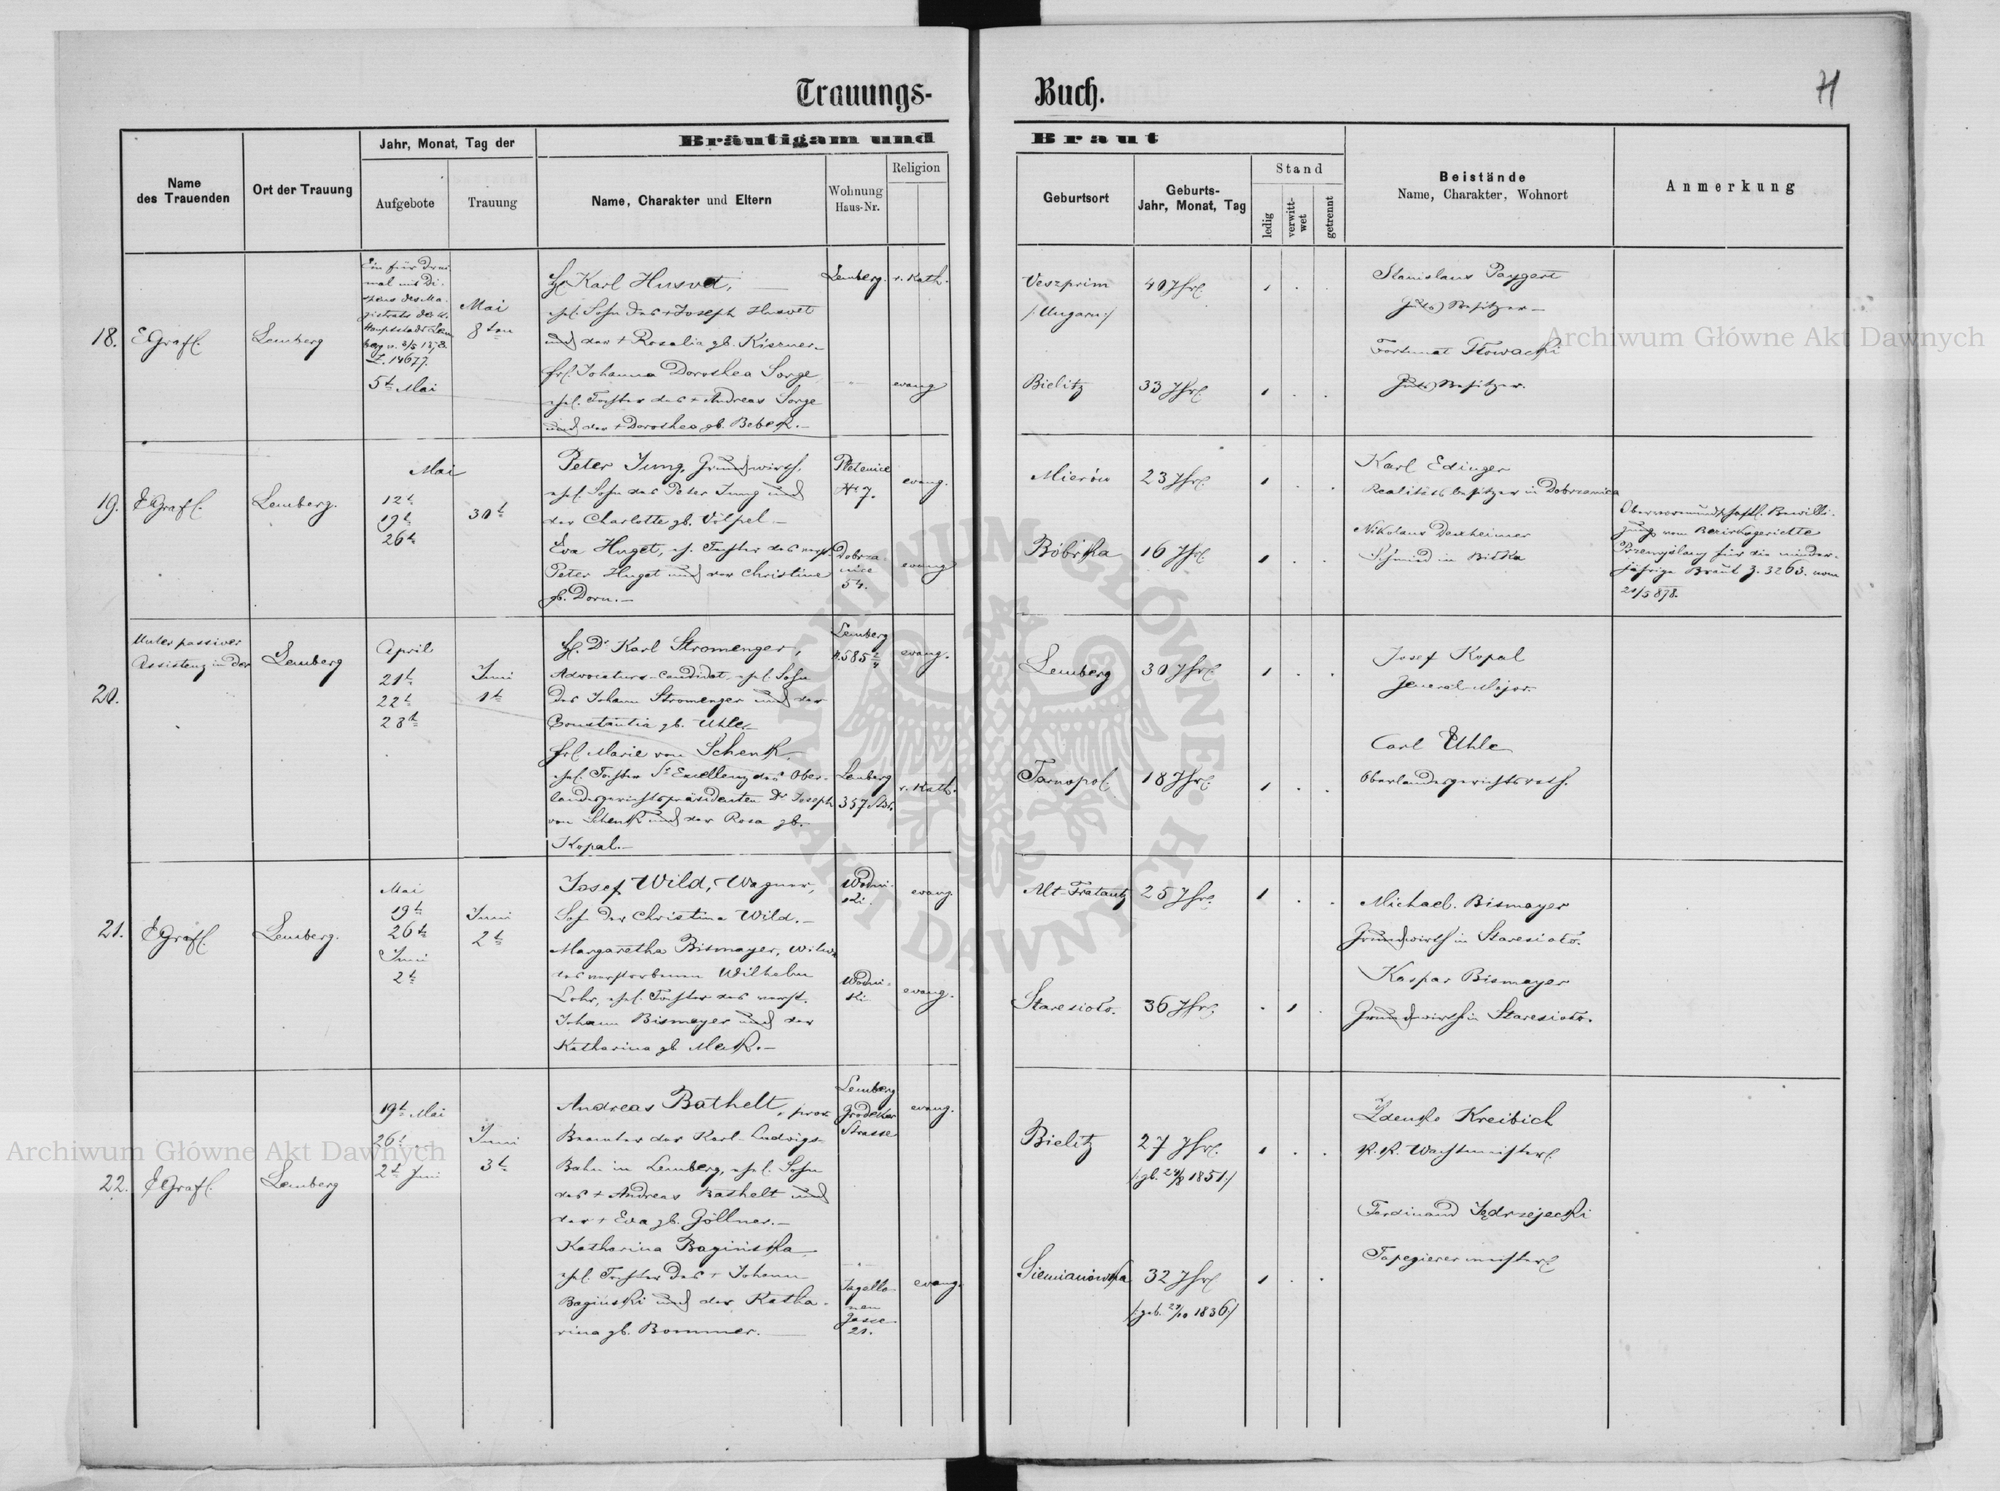 Trauungs- Buch.
71
Bräutigam und Braut
Name
des Trauenden
Ort der Trauung
Jahr, Monat, Tag der
Aufgebote
Trauung
Name, Charakter und Eltern
Wohnung
Haus-Nr.
Religion
Geburtsort
Geburts-
Jahr, Monat, Tag
Stand
ledig
verwitt-
wet
getrennt
Beistände
Name, Charakter, Wohnort
Anmerkung
18.
E Grafl.
Lemberg
Ein für drei
mal mit Di-
spens des Ma-
gistrats der k.
Hauptstadt Lem
berg v. 3/5 1878.
Z. 14677.
5t Mai
Mai
8ten
H. Karl Husvet,
ehel. Sohn des + Joseph Husvet
und der + Rosalia gb.
Frl. Johanna Dorothea Sorge
ehel. Tochter des + Andreas Sorge
und der + Dorothea gb. Bebek.—
Lemberg.
r. Kath.
evang
Veszprim
/:Ungarn:/
40 Jhr.
Bielitz
33 Jhr.
Stanislaus Paygert
Guts Besitzer—
Fortunat
Guts Besitzer.
19.
E Grafl.
Lemberg.
Mai
12t
19t
26t
30t
Peter Jung, Grundwirth,
ehel. Sohn des Peter Jung und
der Charlotte gb. Völpel—
Eva Huget, eh. Tochter des verst.
Peter Huget und der Christine
gb. Dorn.—
Pletenice
Nr 7.
Dobrza
nice
54.
evang.
evang
Mierów
23 Jhr.
Bóbrka
16 Jhr.
Karl Edinger
Realitätsbesitzer in Dobrzanica
Nikolaus Dexheimer
Schmied in Bitka
Obervormundschaftl. Bewilli-
gung vom Bezirksgerichte
Przemyślany für die minder-
jährige Braut Z. 3263. vom
21/5 878.
20.
Unter passiver
Assistenz in der
Lemberg
April
21t
22t
28t
Juni
1t
H. Dr Karl Stromenger,
Advocaturs-Candidat, ehel. Sohn
des Johann Stromenger und der
Constantia gb. Uhle.—
Frl. Marie von Schenk,
ehel. Tochter Sr Excellenz des Ober-
landesgerichtspräsidenten Dr Joseph
von Schenk und der Rosa gb.
Kopal.—
Lemberg
N. 585 2/4
Lemberg
357
evang.
r. Kath.
Lemberg
30 Jhr.
Tarnopol
18 Jhr.
Josef Kopal
General-Major
Carl Uhle
Oberlandesgerichtsrath.
21.
E Grafl.
Lemberg.
Mai
19t
26t
Juni
2t
Juni
2t
Josef Wild, Wagner,
Sohn der Christina Wild.—
Margaretha Bismayer, Witwe
des verstorbenen Wilhelm
Lohr, ehel. Tochter des verst.
Johann Bismayer und der
Katharina gb. Mack.—
Wodni-
ki.
Wodni-
ki
evang.
evang.
Alt-Fratautz
25 Jhr.
Staresioło.
36 Jhr.
Michael Bismayer
Grundwirth in Staresioło.
Kaspar Bismayer
Grundwirth in Staresioło.
22.
E Grafl.
Lemberg
19t Mai
26t
2t Juni
Juni
3t
Andreas Bathelt, prov.
Beamter der Karl-Ludwigs-
Bahn in Lemberg, ehel. Sohn
des + Andreas Bathelt und
der + Eva gb. Göllner.—
Katharina Bagińska
ehel. Tochter des + Johann
Bagiński und der Katha-
rina gb. Bommer.—
Lemberg
Grodeker
Strasse
Jagello
nen
Gasse
21.
evang.
evang.
Bielitz
27 Jhr.
/:gb. 24/8 1851:/
Siemianówka
32 Jhr.
/:geb. 29/10 1836:/
Zdenko Kreibich
k. k. Wachtmeister
Ferdinand Jędrzejecki
Tapezierermeister
Archiwum Główne Akt Dawnych
Archiwum Główne Akt Dawnych
ARCHIWUM GŁÓWNE AKT DAWNYCH